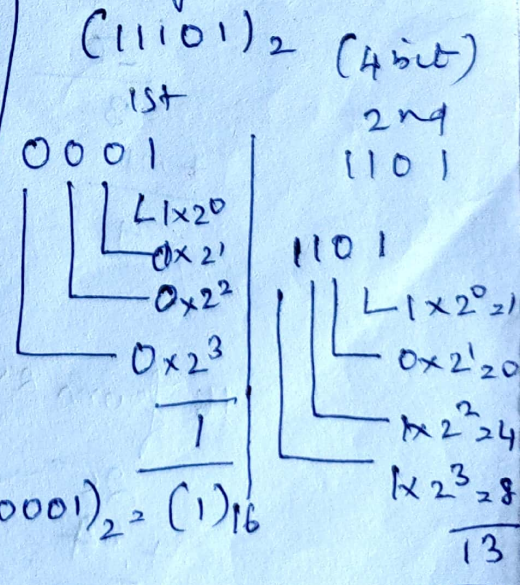 (11101)₂ (4 bit)
1st
0001
1×2⁰
0×2¹
0×2²
0×2³
1
0001)₂ = (1)₁₆
2nd
1101
1101
1×2⁰=1
0×2¹=0
1×2²=4
1×2³=8
13